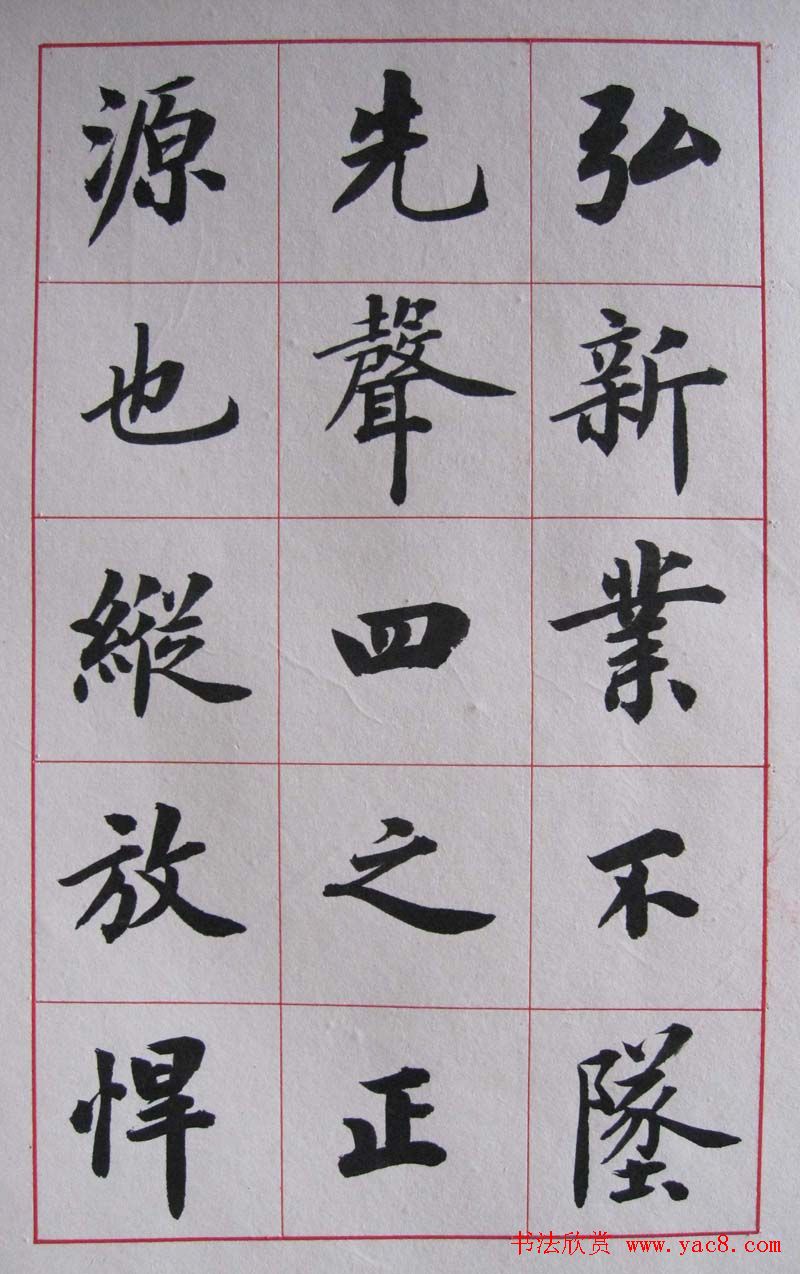 弘新業不墜
先聲四之正
源也縱放悍
书法欣赏 www.yac8.com